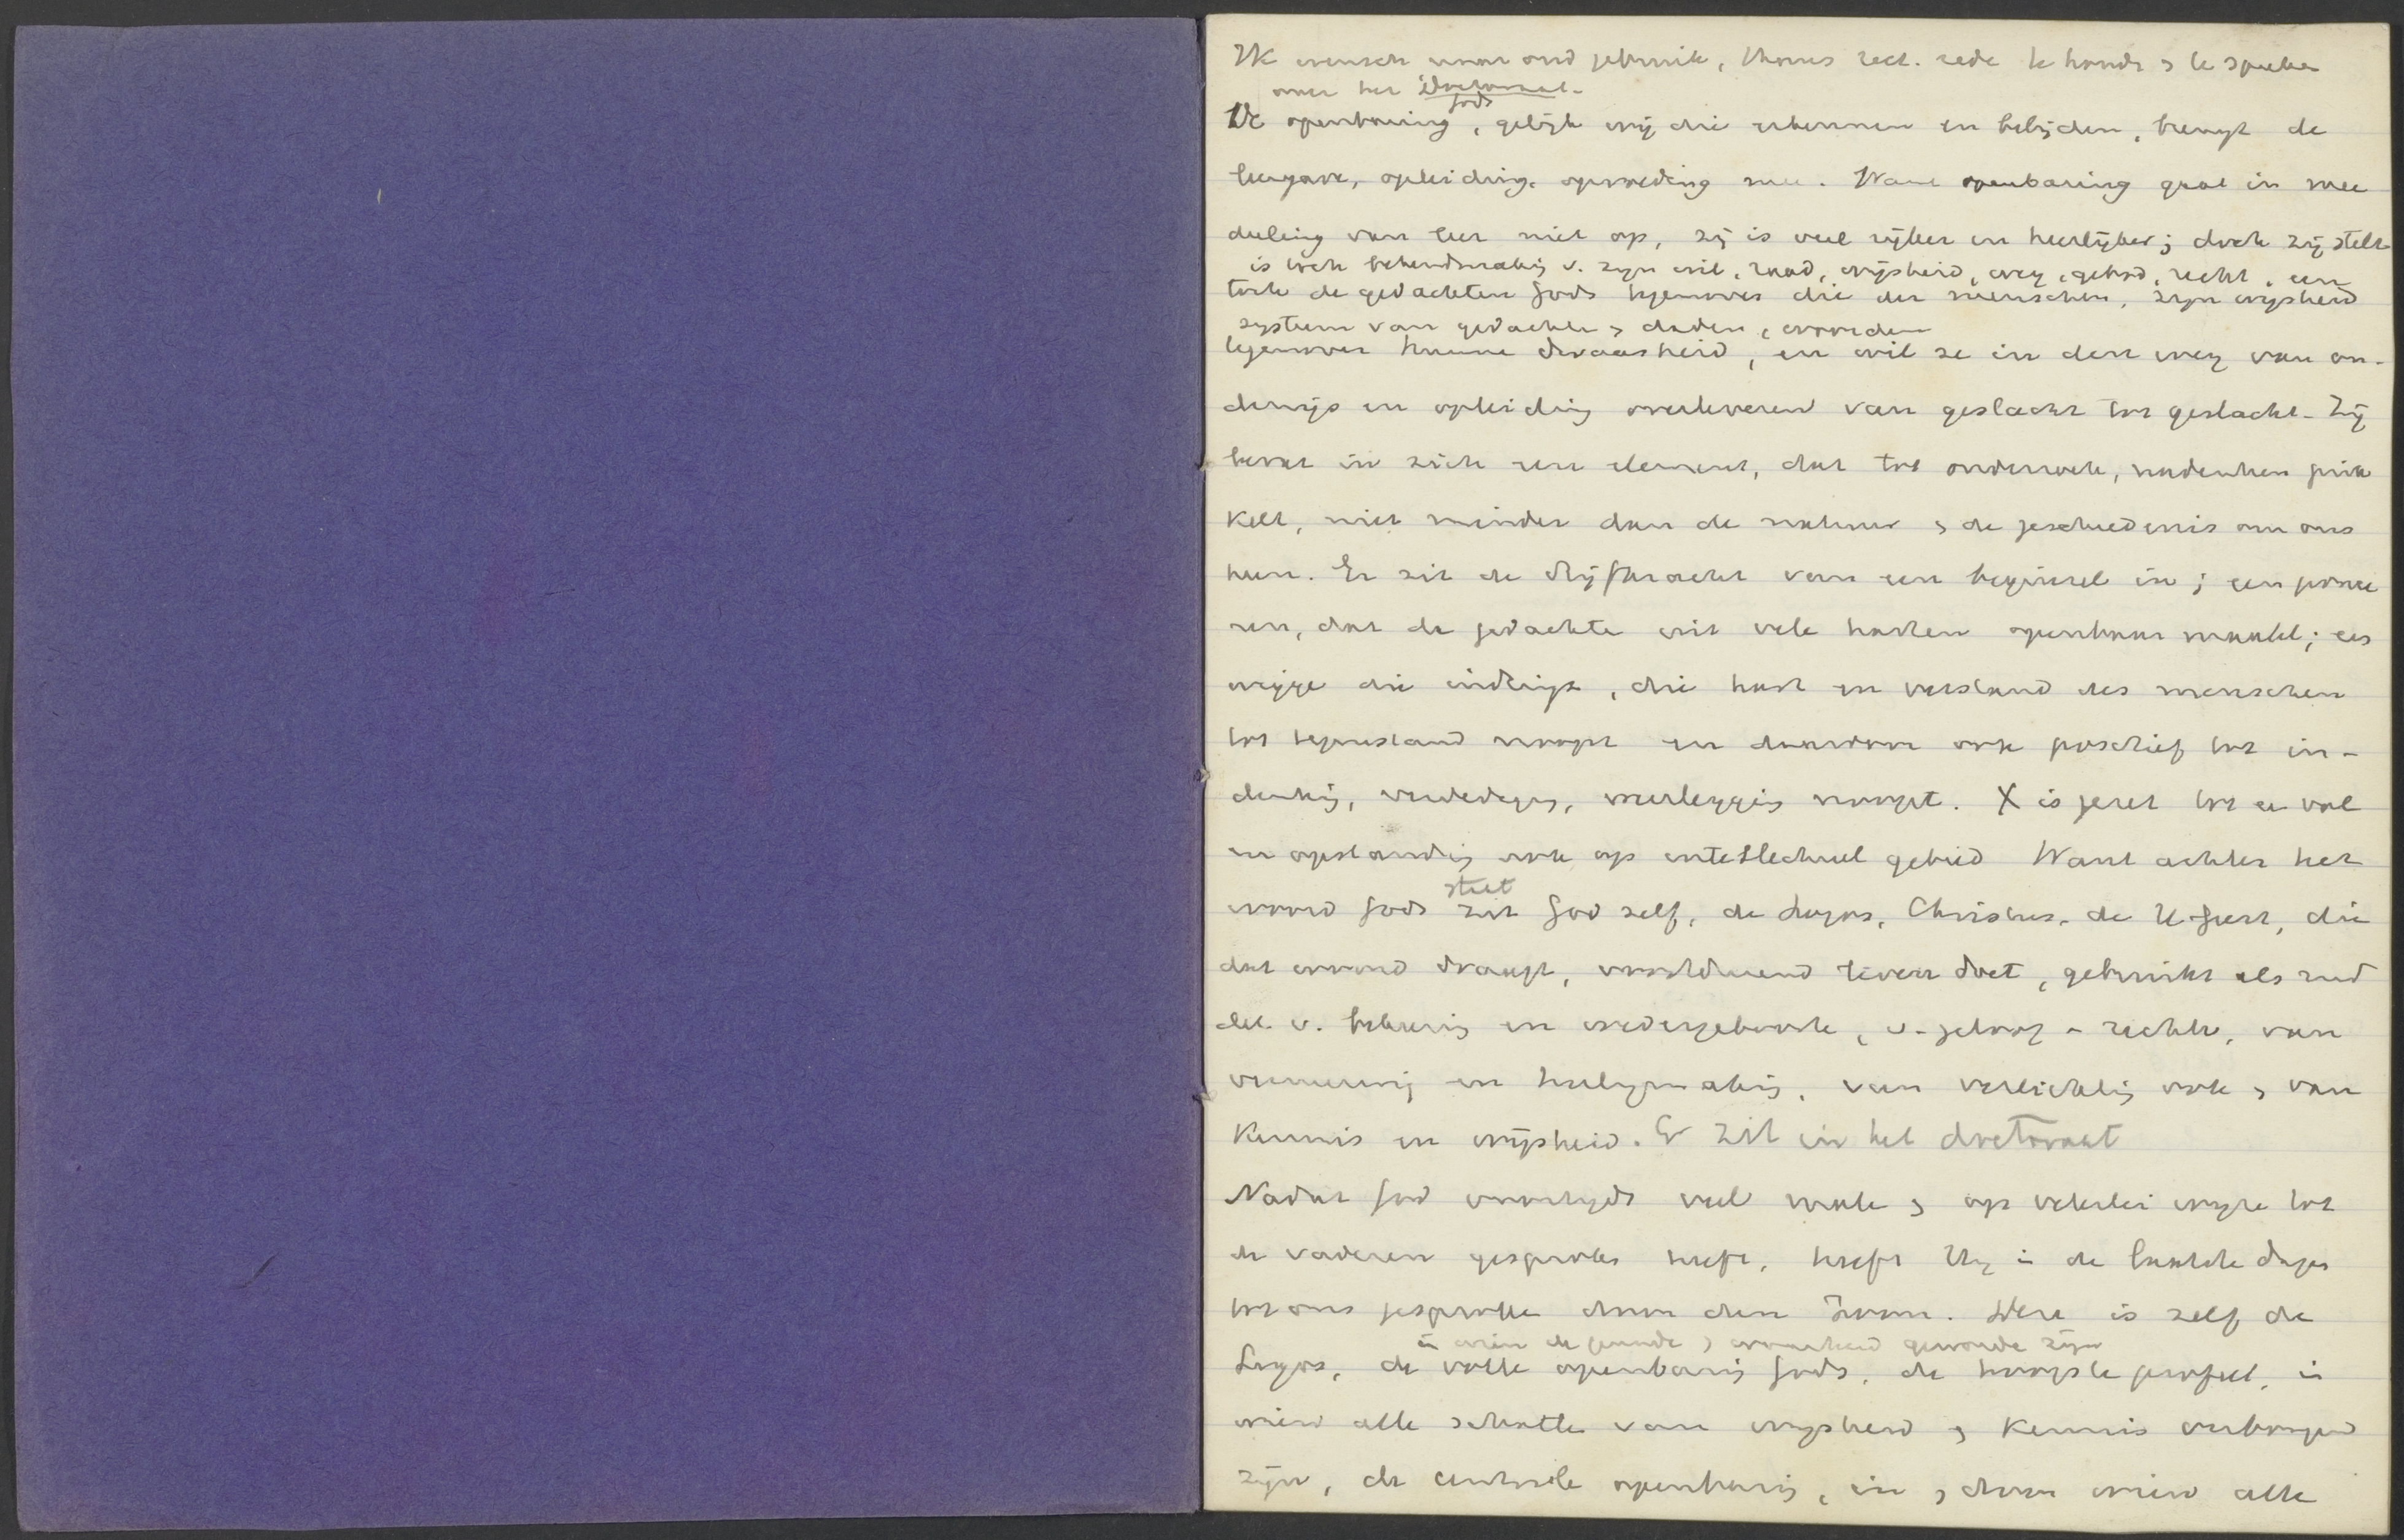 Ik wensch naar oud gebruik, thans rect. rede te houde & te spreken
over het Doctoraat.
Gods
De openbaring, gelijk wij die erkennen en belijden, brengt de
leergave, opleiding, opvoeding mee. Want openbaring gaat in mee
deeling van leer niet op, zij is veel rijker en heerlijker; doch zij stelt
is toch bekendmaking v. zijn wil, raad, wijsheid, weg, gebod, recht, een
toch de gedachten Gods tegenover die der menschen, zijn wijsheid
systeem van gedachte & daden, woorden
tegenover hunne dwaasheid, en wil ze in den weg van on-
derwijs en opleiding overleveren van geslacht tot geslacht. Zij
bevat in zich een element, dat tot onderzoek, nadenken prik
kelt, niet minder dan de natuur & de geschiedenis om ons
heen. Er zit de drijfkracht van een beginsel in; een
dat de gedachte uit vele harten openbaar maakt; een
wigge die indringt, die hart en verstand des menschen
tot tegenstand noopt en daardoor ook positief tot in-
denking, verdediging, weerlegging noopt. X is gezet tot een val
en opstanding ook op intellectueel gebied Want achter het
staat
woord Gods zit God zelf, de Logos, Christus, de H. Geest, die
dat woord draagt, voortdurend leven doet, gebruikt als mid
del v. bekeering en wedergeboorte, v. geloof en rechtv, van
vernieuwing en heiligmaking, van verlichting ook & van
kennis en wijsheid. Er zit in het doctoraat
Nadat God voortijds veel male & op velerlei wijze tot
de vaderen gesproken heeft, heeft Hij in de laatste dagen
tot ons gesproken door den Zoon. Deze is zelf de
in wien de genade & waarheid geworden zijn
Logos, de volle openbaring Gods, de hoogste profeet, in
wien alle schatten van wijsheid & kennis verborgen
zijn, de centrale openbaring, in & door wien alle